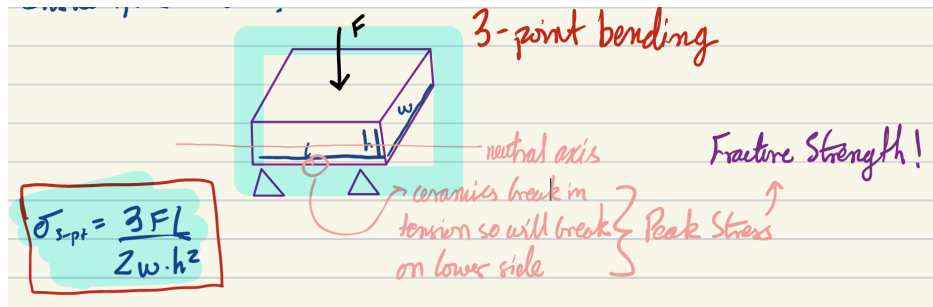 3-point bending
F
w
h
L
neutral axis
Fracture Strength!
ceramics break in
tension so will break
on lower side
Peak Stress
σ3-pt = 3FL
2w·h²